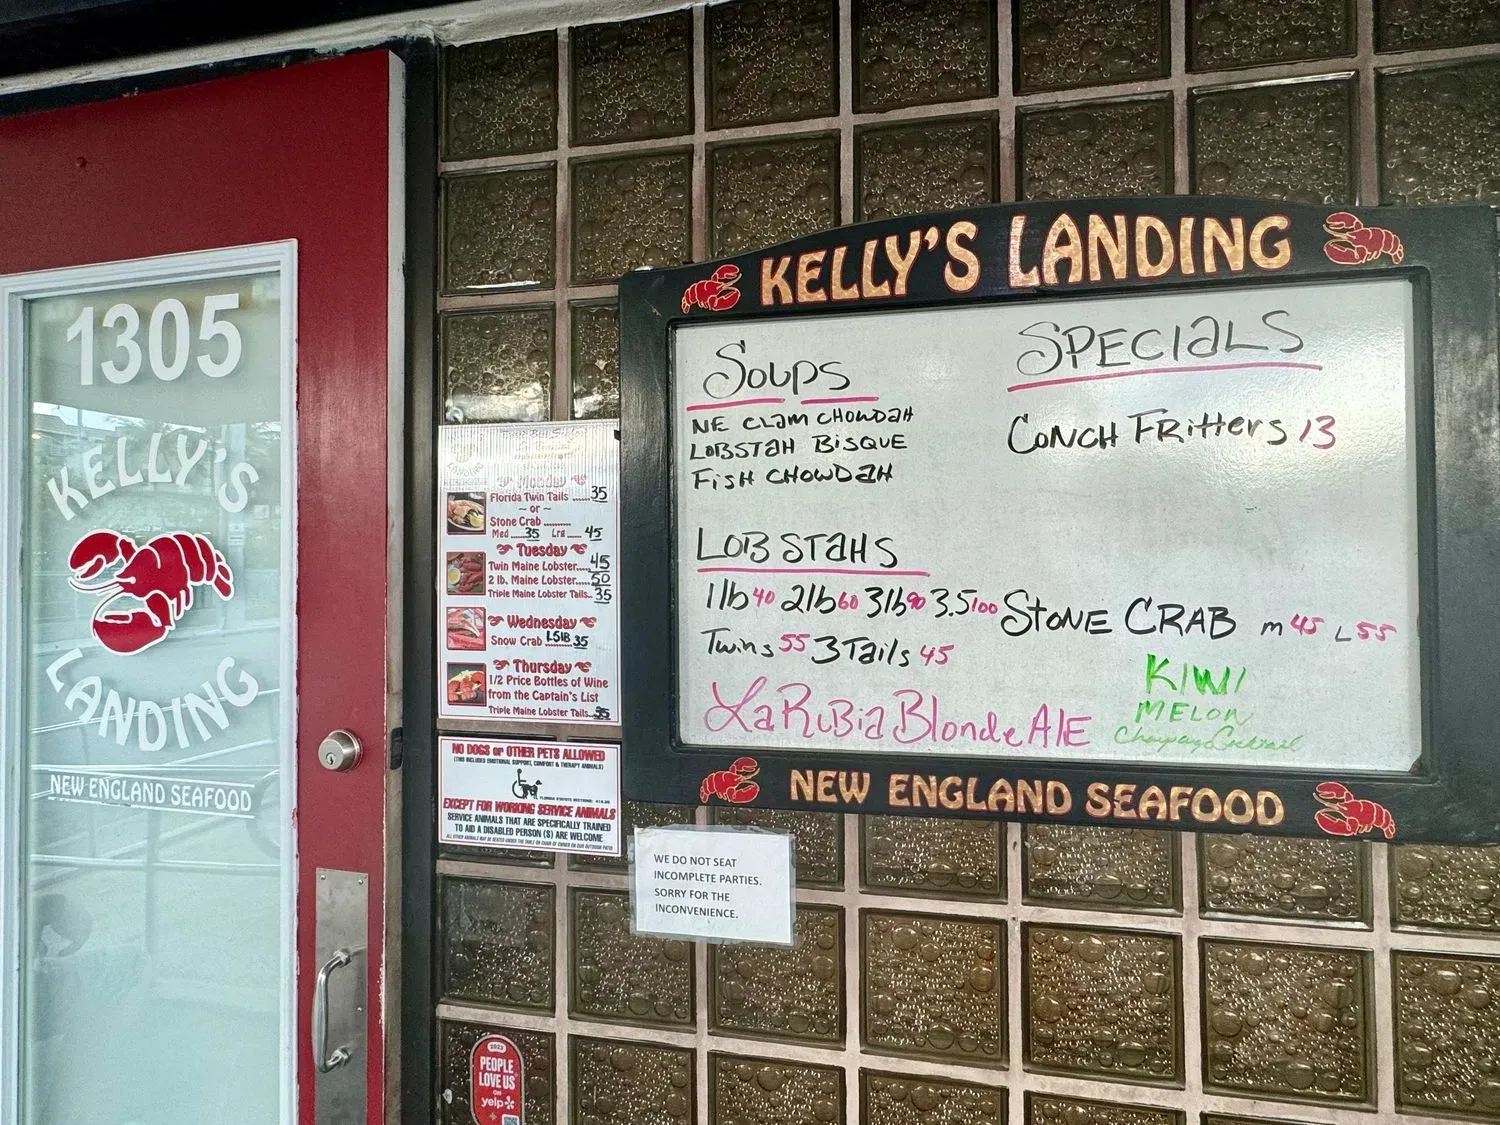 1305
KELLY'S
LANDING
NEW ENGLAND SEAFOOD
Monday
Florida Twin Tails ......35
~ or ~
Stone Crab ..........
Med ....35 Lrg .... 45
Tuesday
Twin Maine Lobster....45
2 lb. Maine Lobster.....50
Triple Maine Lobster Tails.. 35
Wednesday
Snow Crab 1.5lb 35
Thursday
1/2 Price Bottles of Wine
from the Captain's List
Triple Maine Lobster Tails...35
NO DOGS or OTHER PETS ALLOWED
(THIS INCLUDES EMOTIONAL SUPPORT, COMFORT & THERAPY ANIMALS)
EXCEPT FOR WORKING SERVICE ANIMALS
SERVICE ANIMALS THAT ARE SPECIFICALLY TRAINED
TO AID A DISABLED PERSON (S) ARE WELCOME
2023
PEOPLE
LOVE US
ON
yelp
KELLY'S LANDING
SOUPS
NE CLAM CHOWDAH
LOBSTAH BISQUE
FISH CHOWDAH
LOBSTAHS
1lb 40 2lb 60 3lb 90 3.5 100
Twins 55 3 Tails 45
La Rubia Blonde Ale
SPECIALS
CONCH FRITTERS 13
STONE CRAB M 45 L 55
KIWI
MELON
NEW ENGLAND SEAFOOD
WE DO NOT SEAT
INCOMPLETE PARTIES.
SORRY FOR THE
INCONVENIENCE.